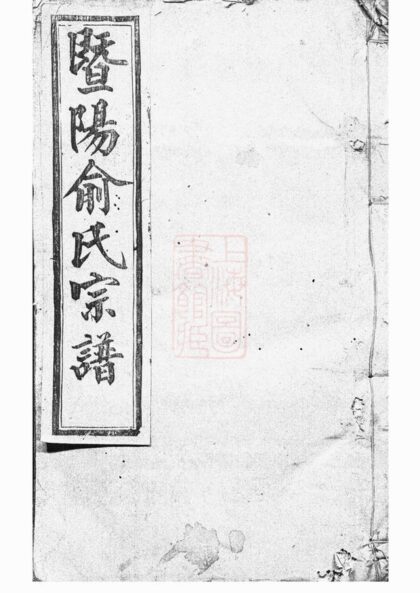 暨陽俞氏宗譜
上海圖
書館